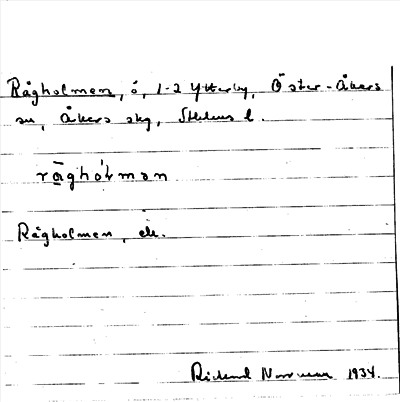 Rågholmen, ö, 1-2 Ytterby, Öster-Åkers
sn, Åkers skg, Sthlms l.
rāghólmən
Rågholmen, ek.
Rickard Norrman 1934.